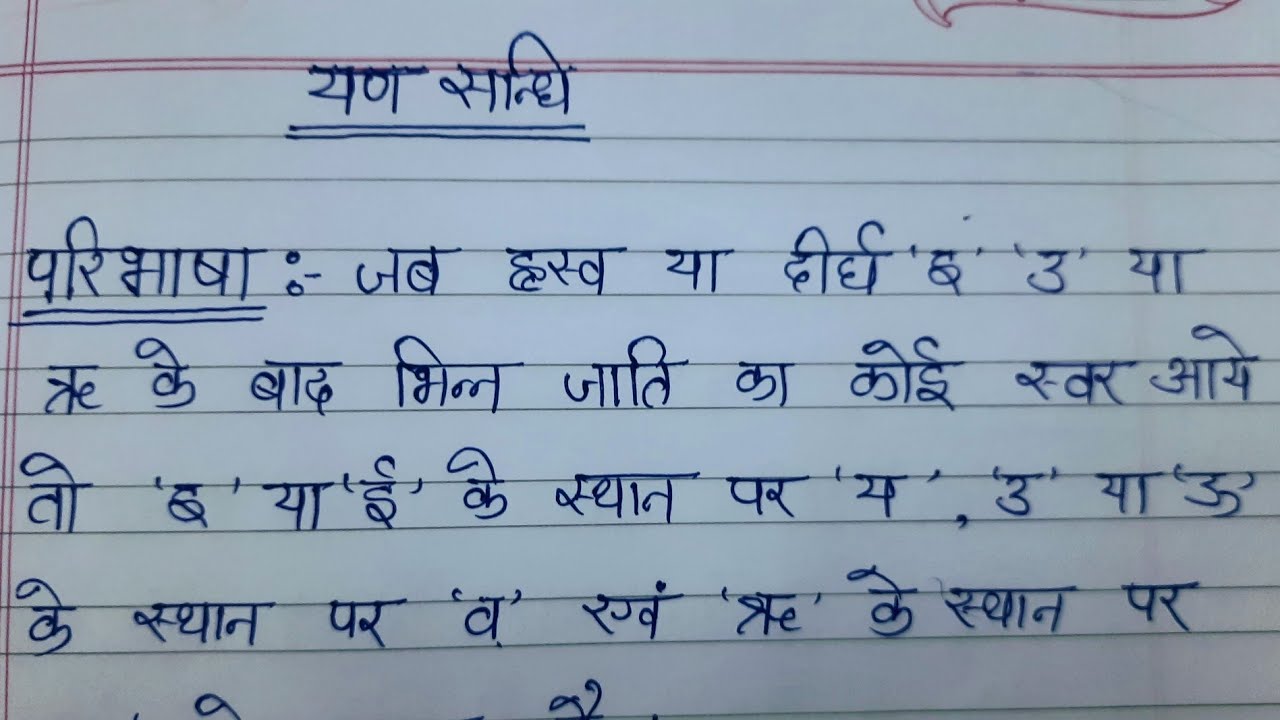 यण सन्धि
परिभाषा :- जब ह्रस्व या दीर्घ 'इ' 'उ' या
ऋ के बाद भिन्न जाति का कोई स्वर आये
तो 'इ' या 'ई' के स्थान पर 'य', 'उ' या 'ऊ'
के स्थान पर 'व्' एवं 'ऋ' के स्थान पर